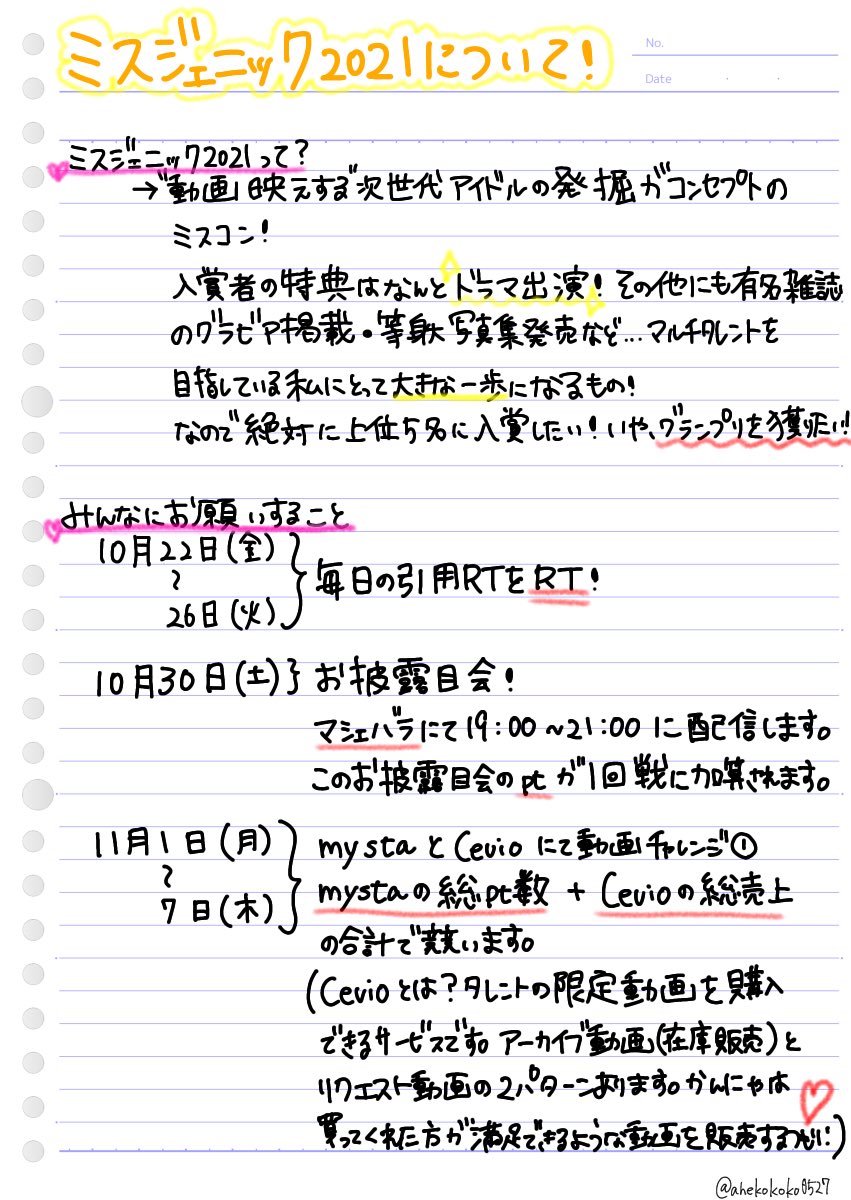 ミスジェニック2021について!
No.
Date
ミスジェニック2021って?
→"動画"映えする"次世代アイドルの発掘がコンセプトの
ミスコン!
入賞者の特典はなんとドラマ出演!その他にも有名雑誌
のグラビア掲載・等身大写真集発売など...マルチタレントを
目指している私にとって大きな一歩になるもの!
なので絶対に上位5名に入賞したい!いや、グランプリを獲りたい!!
みんなにお願いすること
10月22日(金)
~
26日(火)
毎日の引用RTをRT!
10月30日(土)} お披露目会!
マシェバラにて19:00~21:00に配信します。
このお披露目会のptが1回戦に加算されます。
11月1日(月)
~
7日(木)
mystaとCevioにて動画チャレンジ①
mystaの総pt数 + Cevioの総売上
の合計で競います。
(Cevioとは?タレントの限定動画を購入
できるサービスです。アーカイブ動画(在庫販売)と
リクエスト動画の2パターンあります。かんにゃは
買ってくれた方が満足できるような動画を販売する)
@anekokoko8527